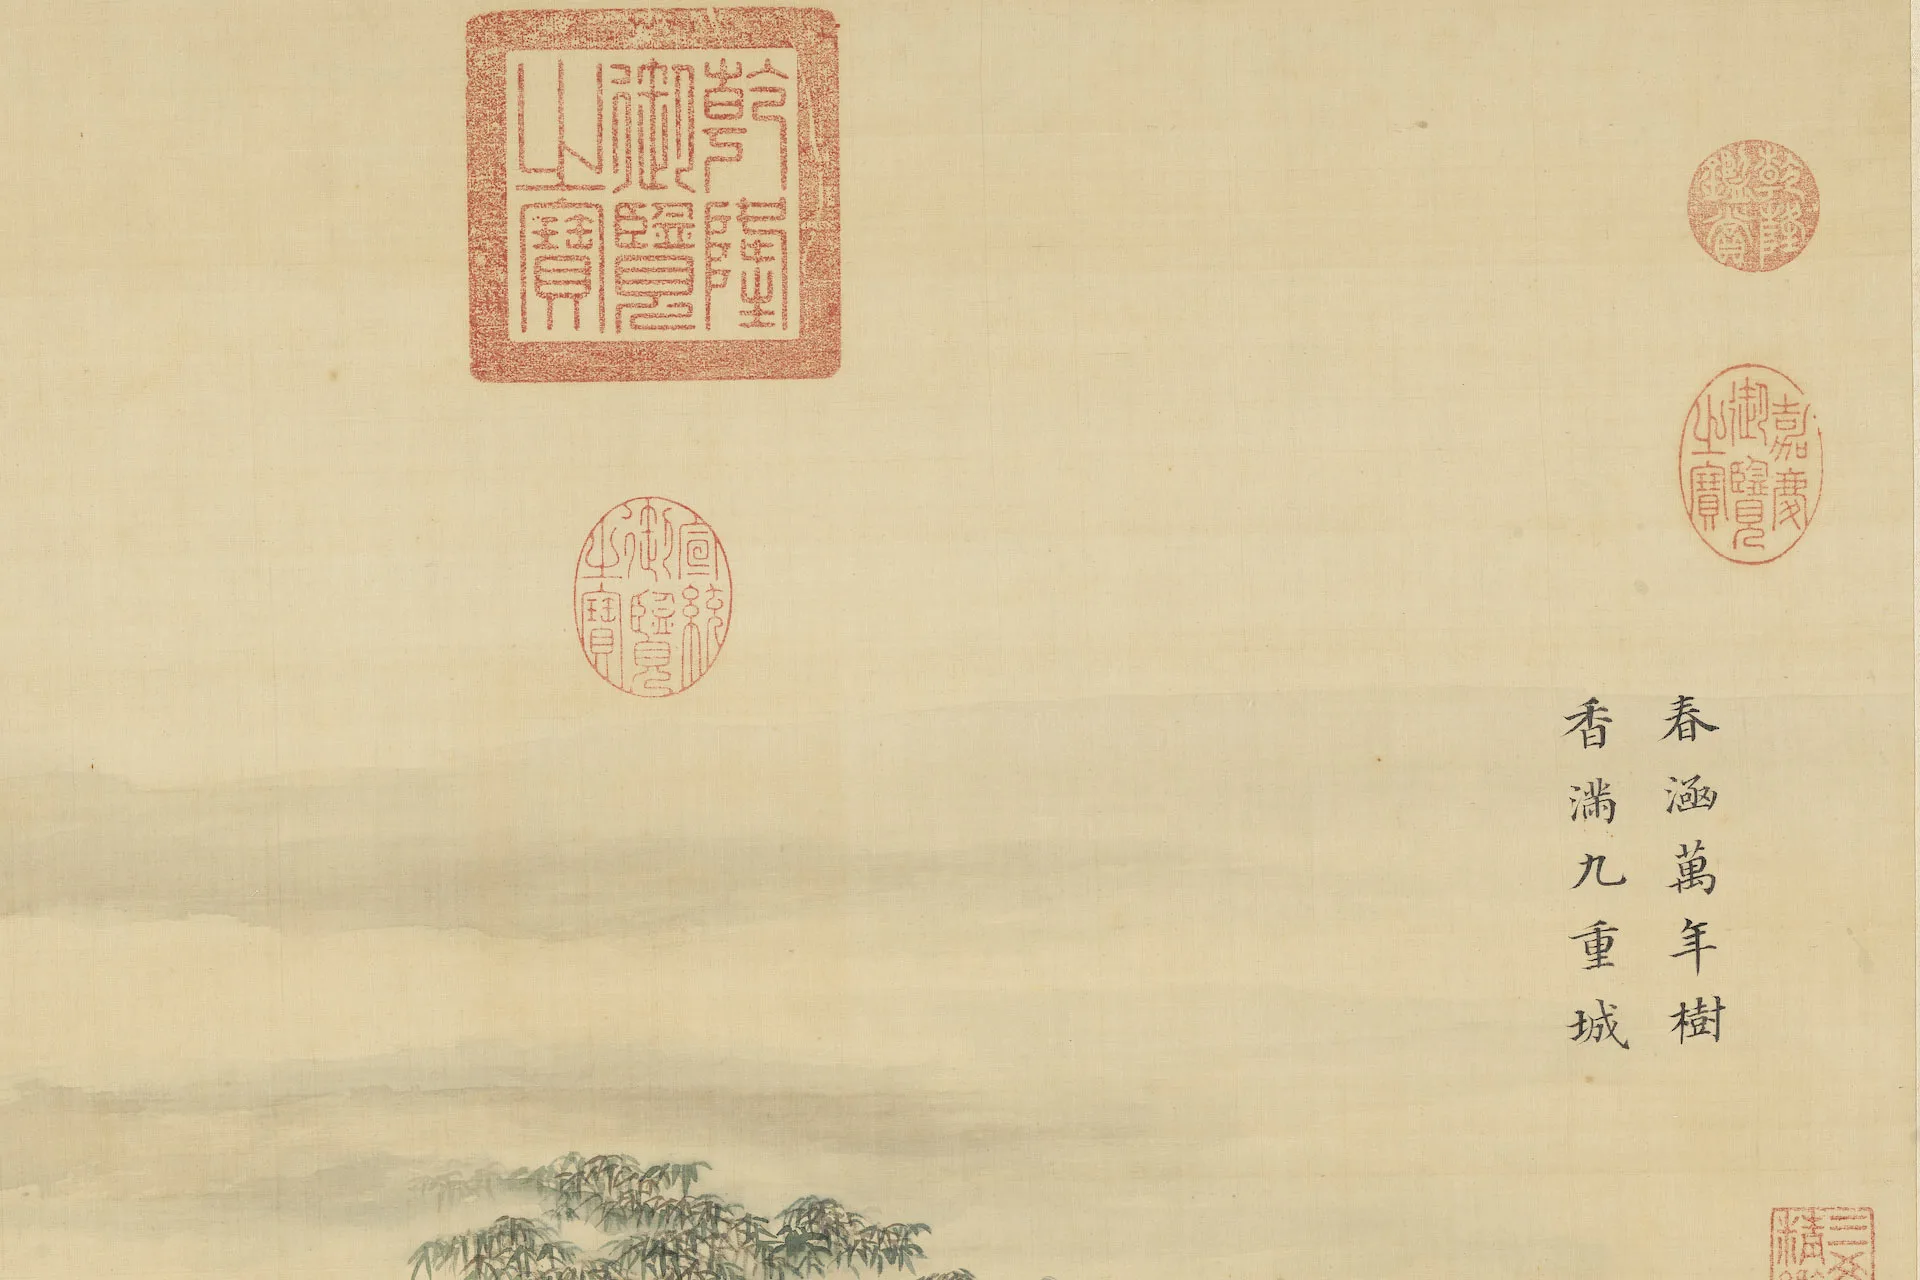 春涵萬年樹
香滿九重城
乾隆御覽之寶
乾隆鑑賞
嘉慶御覽之寶
宣統御覽之寶
三
精